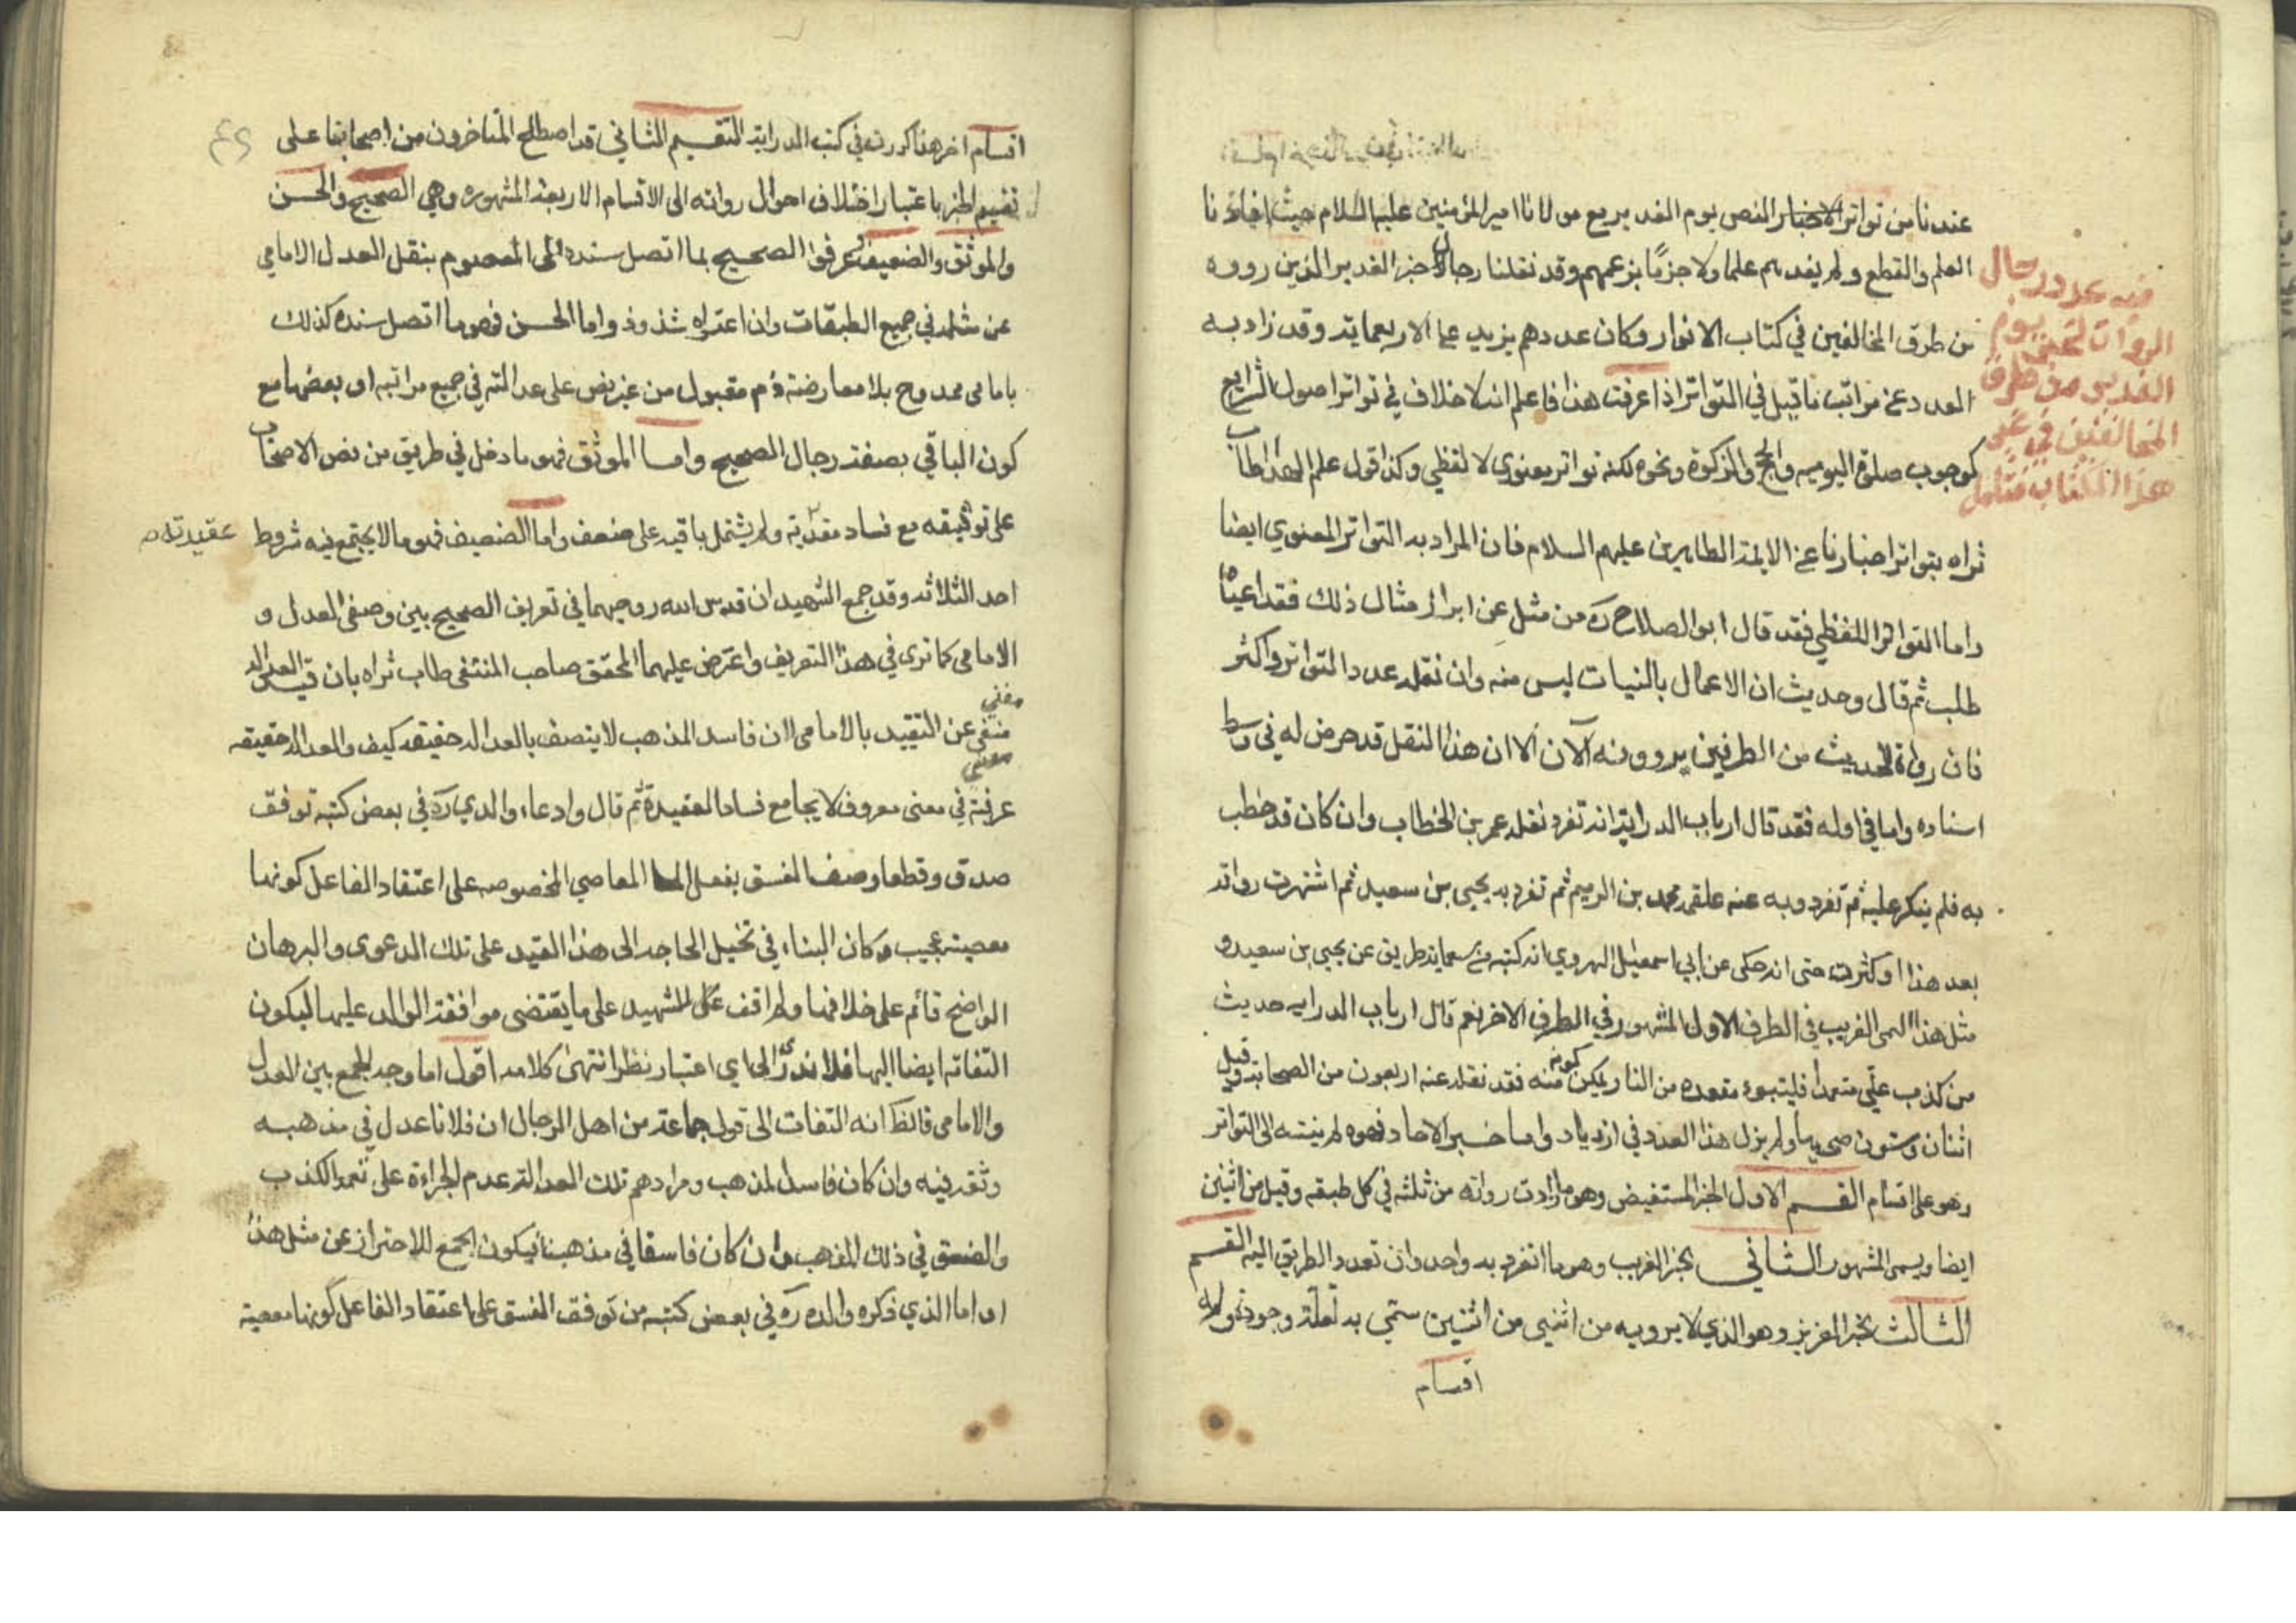 عندنا من تواتر الاخبار النص يوم الغدير مع مولانا امير المؤمنين عليه السلام حيث افادنا
العلم والقطع ولم يفدهم علما ولا جزمًا بزعمهم وقد نقلنا رجال خبر الغدير الذين رووه
من طرق المخالفين في كتاب الانوار وكان عددهم يزيد على الاربعماية وقد زاد به
العدد عن مراتب ما قيل في التواتر اذا عرفت هذا فاعلم انه لا خلاف في تواتر اصول الشرايع
كوجوب صلوة اليوميه والحج والزكوة ونحوه لكنه تواتر معنوي لا لفظي وكذا قول علم الهدى طاب
ثراه بتواتر اخبارنا عن الايمة الطاهرين عليهم السلام فان المراد به التواتر المعنوي ايضا
واما التواتر اللفظي فقد قال ابو الصلاح ره من سئل عن ابراز مثال ذلك فقد اعياه
طلبه ثم قال وحديث ان الاعمال بالنيات ليس منه وان نقله عدد التواتر واكثر
فان رواة الحديث من الطرفين يروونه الآن الا ان هذا النقل قد عرض له في وسط
اسناده واما في اوله فقد قال ارباب الدراية انه تفرد نقله عمر بن الخطاب وان كان قد خطب
به فلم ينكر عليه ثم تفرد به عنه علقمه محمد بن ابراهيم ثم تفرد به يحيى بن سعيد ثم اشتهرت رواته
بعد هذا او كثرت حتى انه حكى عن ابي اسمعيل الهروي انه كتبه من سبعماية طريق عن يحيى بن سعيد و
مثل هذا يسمى الغريب في الطرف الاول المشهور في الطرف الاخر نعم قال ارباب الدرايه حديث
من كذب عليّ متعمدا فليتبوء مقعده من النار يمكن كونه منه فقد نقله عنه اربعون من الصحابة وقيل
اثنان وستون صحابيا ولم يزل هذا العدد في ازدياد واما خبر الاحاد فهو ما لم ينته الى التواتر
وهو على اقسام القسم الاول الخبر المستفيض وهو ما زادت رواته من ثلثه في كل طبقه وقيل من اثنين
ايضا ويسمى المشهور الثاني الخبر الغريب وهو ما انفرد به واحد وان تعدد الطريق اليه القسم
الثالث الخبر العزيز وهو الذي لا يرويه من اثنين من اثنين سمي به لقلة وجوده وله
اقسام
فيه عدد رجال
الروات لخبر يوم
الغدير من طرق
المخالفين في غير
هذا الكتاب فتأمل
اقسام اخر مذكورة في كتب الدراية التقسيم الثاني قد اصطلح المتاخرون من اصحابنا على
تقسيم الخبر باعتبار اختلاف احوال رواته الى الاقسام الاربعة المشهوره وهي الصحيح والحسن
والموثق والضعيف وعرفوا الصحيح بما اتصل سنده الى المعصوم بنقل العدل الامامي
عن مثله في جميع الطبقات وان اعتراه شذوذ واما الحسن فهو ما اتصل سنده كذلك
بامامي ممدوح بلا معارضة ذم مقبول من غير نص على عدالته في جميع مراتبه او بعضها مع
كون الباقي بصفة رجال الصحيح واما الموثق فهو ما دخل في طريقه من نص الاصحاب
على توثيقه مع فساد عقيدته ولم يشتمل باقيه على ضعف واما الضعيف فهو ما لا يجتمع فيه شروط
عقيدته
احد الثلاثه وقد جمع الشهيدان قدس الله روحيهما في تعريف الصحيح بين وصفي العدل و
الامامي كما ترى في هذا التعريف واعترض عليهما المحقق صاحب المنتقى طاب ثراه بان قيد العدالة
مغني
مغني عن التقييد بالامامي لان فاسد المذهب لا يتصف بالعدالة حقيقه كيف والعدالة حقيقه
عرفية في معنى معروف لا يجامع فساد العقيدة ثم قال وادعاء والدي ره في بعض كتبه توقف
صدق وقطعا وصف الفسق بفعل المعاصي المخصوصه على اعتقاد الفاعل كونها
معصية عجيب وكان البناء في تخيل الحاجه الى هذا القيد على تلك الدعوى والبرهان
الواضح قائم على خلافها ولم اقف على للشهيد على ما يقتضى موافقة الوالد عليها ليكون
التفاته ايضا اليها فلا ندري الى اي اعتبار نظر انتهى كلامه اقول اما وجه الجمع بين العدل
والامامي فالظ انه التفات الى قول جماعة من اهل الرجال ان فلانا عدل في مذهبه
وثقه فيه وان كان فاسد المذهب ومرادهم تلك العدالة عدم الجراءة على تعمد الكذب
والفسق في ذلك المذهب وان كان فاسقا في مذهبنا فيكون الجمع للاحتراز عن مثل هذا
او اما الذي ذكره والده ره في بعض كتبه من توقف الفسق على اعتقاد الفاعل كونها معصية